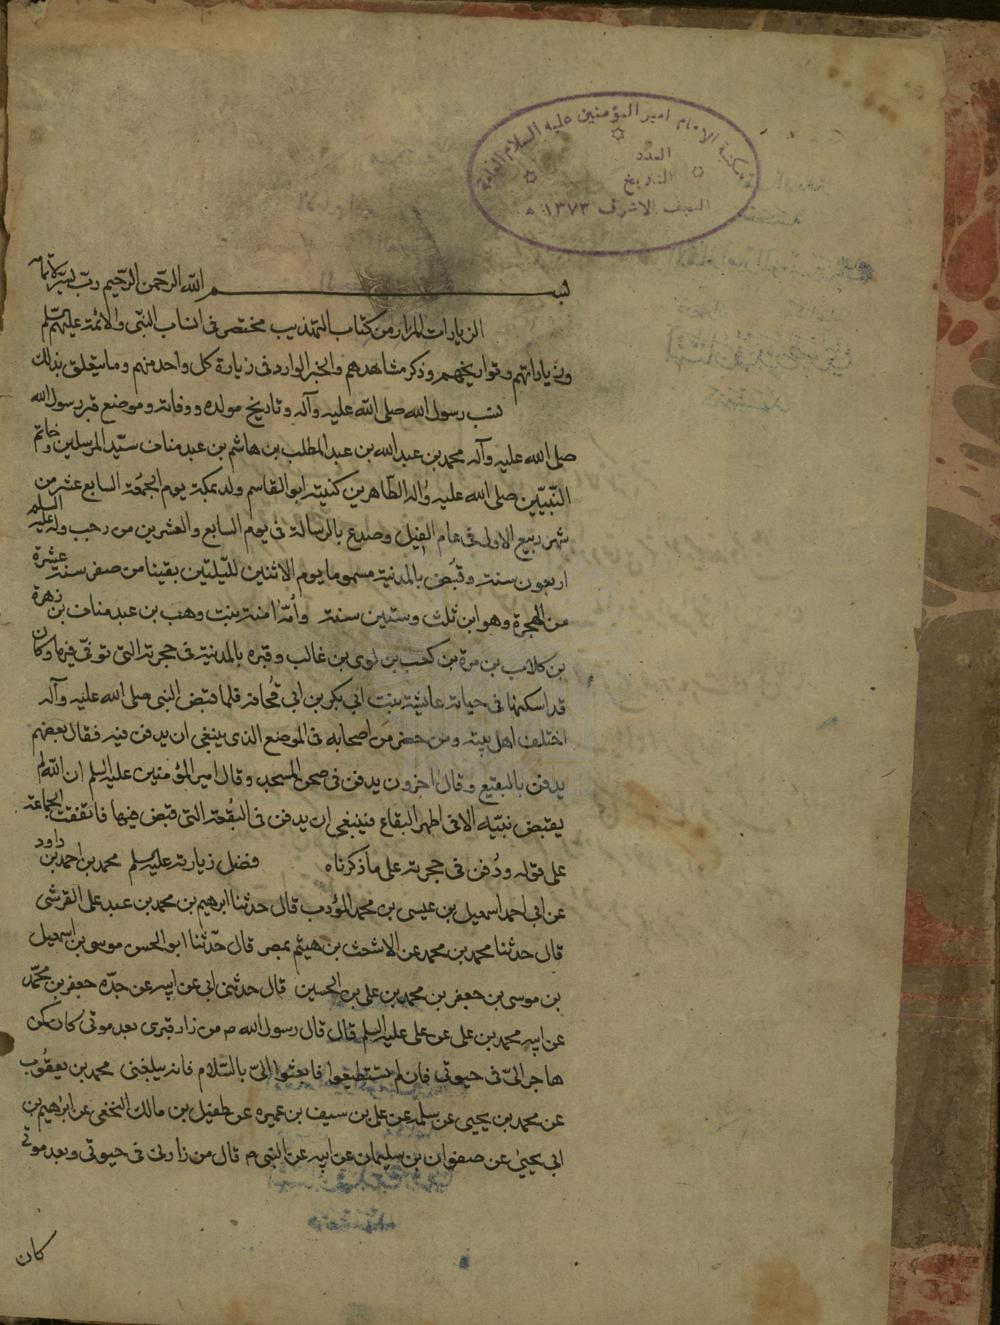 مكتبة الامام امير المؤمنين عليه السلام العامة
العدد
التاريخ
النجف الاشرف ١٣٧٣ ھ
بسم الله الرحمن الرحيم رب يسر
الزيارات المزار من كتاب التهذيب مختصر في انساب النبي والائمة عليهم
وزياراتهم وتواريخهم وذكر مشاهدهم والخبر الوارد في زيارة كل واحد منهم وما يتعلق بذلك
نسب رسول الله صلى الله عليه وآله وتاريخ مولده ووفاته وموضع قبر رسول الله
صلى الله عليه وآله محمد بن عبد الله بن عبد المطلب بن هاشم بن عبد مناف سيد المرسلين وخاتم
النبيين صلى الله عليه وآله الطاهرين كنيته ابو القاسم ولد بمكة يوم الجمعة السابع عشر من
شهر ربيع الاول في عام الفيل وصدع بالرسالة في يوم السابع والعشرين من رجب وله عليه السلم
اربعون سنة وقبض بالمدينة مسموما يوم الاثنين لليلتين بقيتا من صفر سنة عشرة
من الهجرة وهو ابن ثلث وستين سنة وامه امنة بنت وهب بن عبد مناف بن زهرة
بن كلاب بن مرة بن كعب بن لوى بن غالب وقبره بالمدينة في حجرته التي توفى فيها وكان
قد اسكنها في حياته عايشة بنت ابي بكر بن ابي قحافة فلما قبض النبي صلى الله عليه وآله
اختلف اهل بيته ومن حضر من اصحابه في الموضع الذي ينبغي ان يدفن فيه فقال بعضهم
يدفن بالبقيع وقال اخرون يدفن في صحن المسجد وقال امير المؤمنين عليه السلم ان الله لم
يقبض نبيه الا في اطهر البقاع فينبغي ان يدفن في البقعة التي قبض فيها فاتفقت الجماعة
على قوله ودفن في حجرته على ما ذكرناه فضل زيارته عليه السلم محمد بن احمد بن داود
عن ابي احمد اسمعيل بن عيسى بن محمد المؤدب قال حدثنا ابرهيم بن محمد بن عبد على القرشى
قال حدثنا محمد بن محمد عن الاشعث بن هيثم بمصر قال حدثنا ابو الحسن موسى بن اسمعيل
بن موسى بن جعفر بن محمد بن على بن الحسين قال حدثني ابي عن ابيه عن جده جعفر بن محمد
عن ابيه محمد بن على عن على عليه السلم قال قال رسول الله ص من زار قبرى بعد موتى كان كمن
هاجر الىّ في حيوتى فان لم تستطيعوا فابعثوا الىّ بالسلام فانه يبلغنى محمد بن يعقوب
عن محمد بن يحيى عن سلمه عن على بن سيف بن عميره عن طفيل بن مالك النخعى عن ابراهيم بن
ابي يحيى عن صفوان بن سليمان عن ابيه عن النبي ص قال من زارنى في حيوتى وبعد موتى
كان